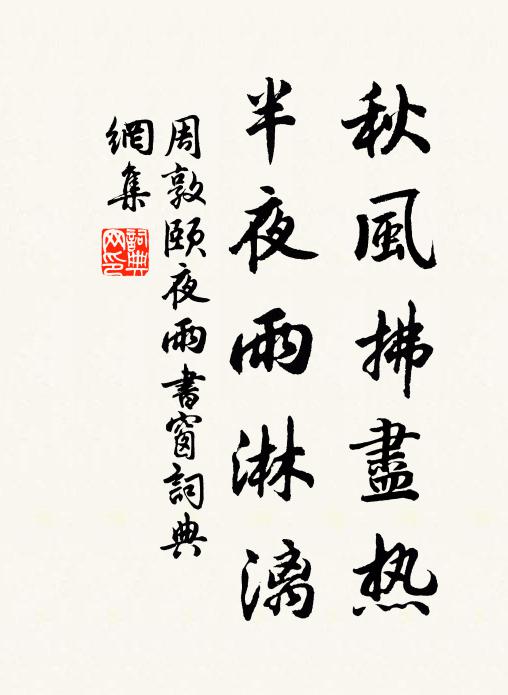 秋風拂盡热
半夜雨淋漓
周敦頤夜雨書窗詞典
網集
詞典
网印